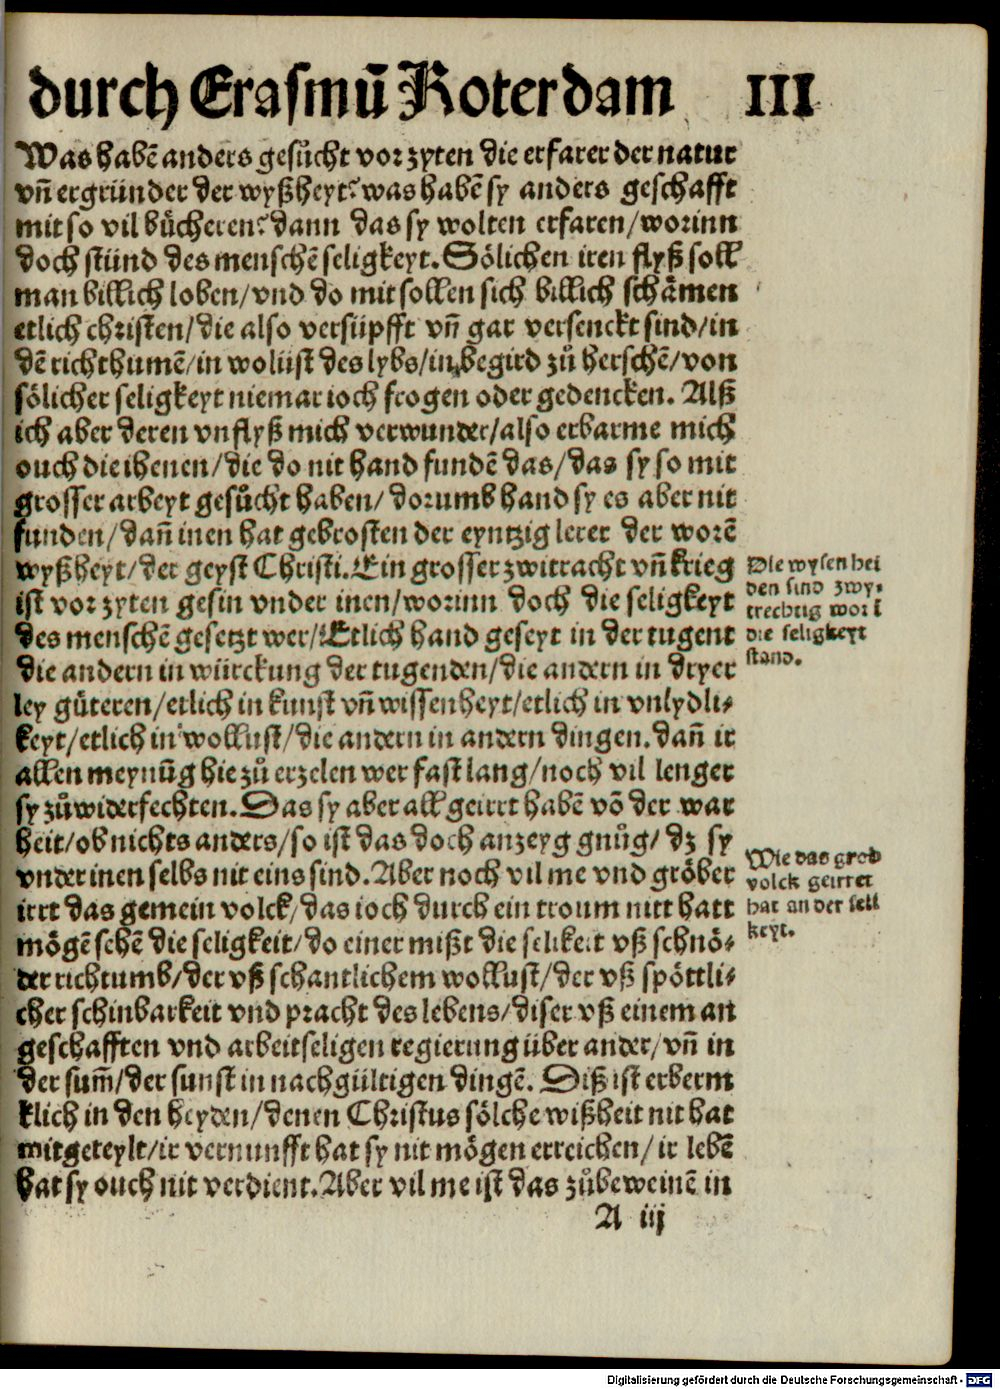 durch Erasmū Roterdam III
Was habē anders gesůcht vor zyten die erfarer der natur
vn̄ ergründer der wyßheyt? was habē sy anders geschafft
mit so vil bůcheren? dann das sy wolten erfaren/worinn
doch stünd des menschē seligkeyt. Sölichen iren flyß soll
man billich loben/vnd do mit sollen sich billich schämen
etlich christen/die also versüpfft vn̄ gar versenckt sind/in
dē richthumē/in wolust des lybs/in begird zů herschē/von
sölicher seligkeyt niemar ioch frogen oder gedencken. Alß
ich aber deren vnflyß mich verwunder/also erbarme mich
ouch die ihenen/die do nit hand fundē das/das sy so mit
grosser arbeyt gesůcht haben/dorumb hand sy es aber nit
funden/dan̄ inen hat gebrosten der eyntzig lerer der worē
wyßheyt/der geyst Christi. Ein grosser zwitracht vn̄ krieg
ist vor zyten gesin vnder inen/worinn doch die seligkeyt
des menschē gesetzt wer/Etlich hand geseyt in der tugent
die andern in würckung der tugenden/die andern in dryer
ley güteren/etlich in kunst vn̄ wissenheyt/etlich in vnlydli-
keyt/etlich in wollust/die andern in andern dingen. dan̄ ir
allen meynūg hie zů erzelen wer fast lang/noch vil lenger
sy zů widerfechten. Das sy aber all geirrt habē vō der war
heit/ob nichts anders/so ist das doch anzeyg gnůg/dz sy
vnder inen selbs nit eins sind. Aber noch vil me vnd gröber
irrt das gemein volck/das ioch durch ein troum nitt hatt
mögē sehē die seligkeit/do einer mißt die selikeit vß schnö-
der richtumb/der vß schantlichem wollust/der vß spöttli-
cher schinbarkeit vnd pracht des lebens/diser vß einem an
geschafften vnd arbeitseligen regierung über ander/vn̄ in
der sum̄/der sunst in nachgültigen dingē. Diß ist erberm
klich in den heyden/denen Christus sölche wißheit nit hat
mitgeteylt/ir vernunfft hat sy nit mögen erreichen/ir lebē
hat sy ouch nit verdient. Aber vil me ist das zů beweinē in
A iij
Die wysen hei
den sind zwy-
trechtig wor ī
die seligkeyt
stand.
Wie das grob
volck geirret
hat an der seli
keyt.
Digitalisierung gefördert durch die Deutsche Forschungsgemeinschaft - DFG